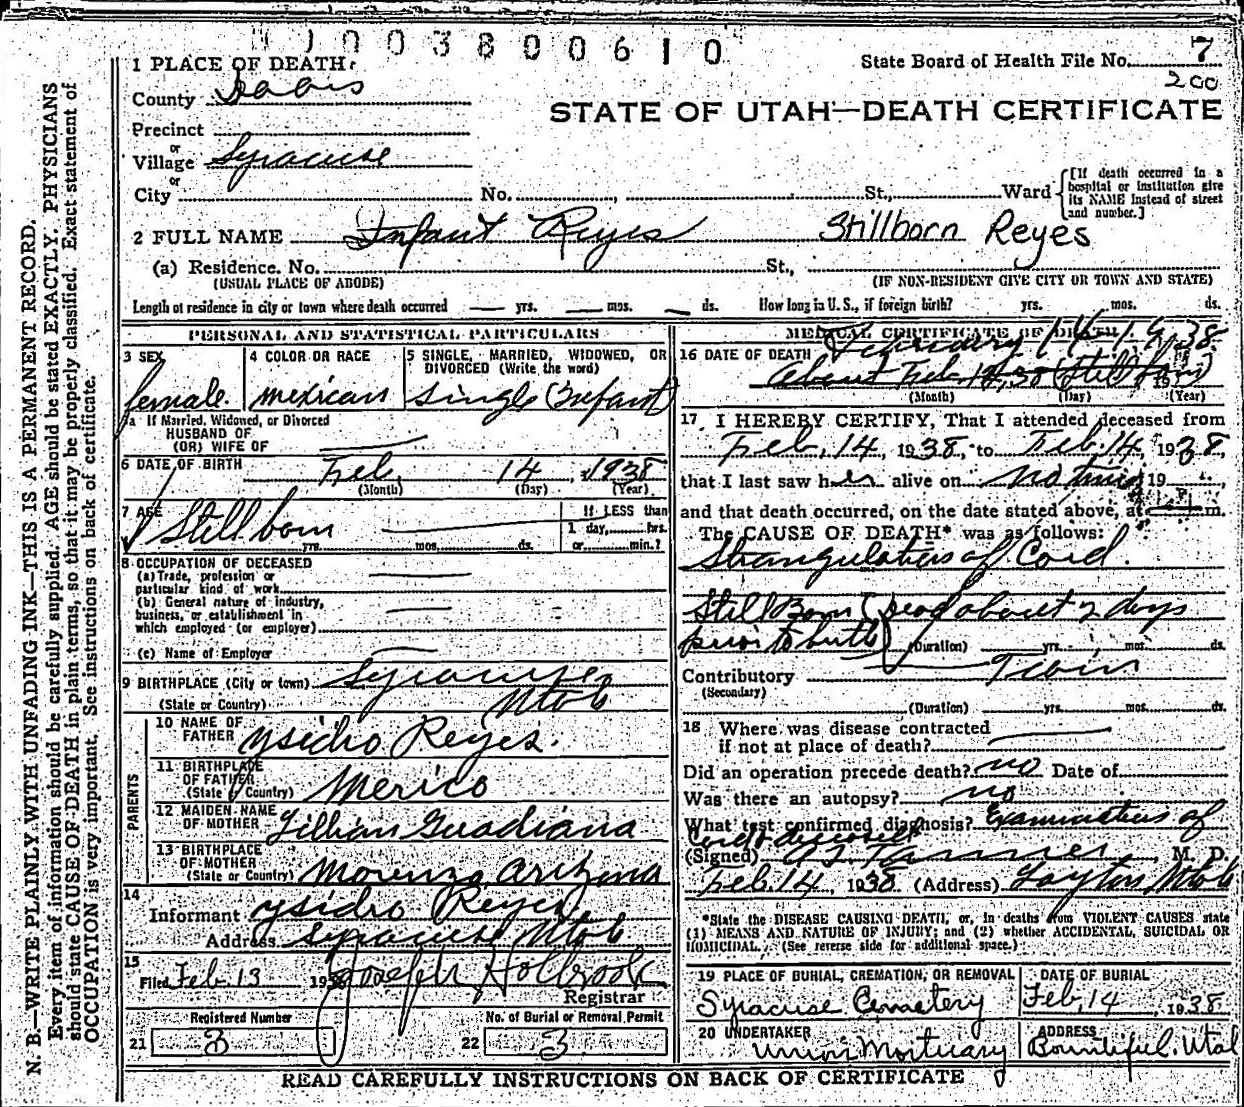 1003800610
State Board of Health File No. 7
200
1 PLACE OF DEATH
County Davis
STATE OF UTAH—DEATH CERTIFICATE
Precinct
or
Village Syracuse
or
City No. , St., Ward
[If death occurred in a hospital or institution give its NAME instead of street and number.]
2 FULL NAME Infant Reyes Stillborn Reyes
(a) Residence. No. St.,
(USUAL PLACE OF ABODE) (IF NON-RESIDENT GIVE CITY OR TOWN AND STATE)
Length of residence in city or town where death occurred — yrs. — mos. — ds. How long in U. S., if foreign birth? yrs. mos. ds.
PERSONAL AND STATISTICAL PARTICULARS
3 SEX
female.
4 COLOR OR RACE
mexican
5 SINGLE, MARRIED, WIDOWED, OR DIVORCED (Write the word)
Single (Infant)
5a If Married, Widowed, or Divorced
HUSBAND OF
(OR) WIFE OF —
6 DATE OF BIRTH Feb. 14, 1938
(Month) (Day) (Year)
7 AGE
Still born
yrs. mos. ds.
If LESS than
1 day, hrs.
or min.?
8 OCCUPATION OF DECEASED
(a) Trade, profession or
particular kind of work —
(b) General nature of industry,
business, or establishment in
which employed (or employer) —
(c) Name of Employer —
9 BIRTHPLACE (City or town) Syracuse
(State or Country) Utah
PARENTS
10 NAME OF
FATHER Ysidro Reyes.
11 BIRTHPLACE
OF FATHER
(State or Country) Mexico
12 MAIDEN NAME
OF MOTHER Lillian Guadiana
13 BIRTHPLACE
OF MOTHER
(State or Country) Morenza, Arizona
14
Informant Ysidro Reyes
Address Syracuse Utah
15
Filed Feb. 13 1938 Joseph Holbrook
Registrar
Registered Number
21 3
No. of Burial or Removal Permit
22 3
MEDICAL CERTIFICATE OF DEATH
16 DATE OF DEATH February 14 1938
About Feb. 12, 38 (Still born)
(Month) (Day) (Year)
17 I HEREBY CERTIFY, That I attended deceased from
Feb. 14, 1938, to Feb. 14, 1938
that I last saw her alive on no time 19 ,
and that death occurred, on the date stated above, at m.
The CAUSE OF DEATH* was as follows:
Strangulation of Cord.
Still Born (dead about 2 days
prior to birth)
(Duration) yrs. mos. ds.
Contributory Twin
(Secondary)
(Duration) yrs. mos. ds.
18 Where was disease contracted
if not at place of death? —
Did an operation precede death? no Date of
Was there an autopsy? no
What test confirmed diagnosis? Examination of
Cord
(Signed) Tanner, M. D.
Feb. 14, 1938 (Address) Layton, Utah
*State the DISEASE CAUSING DEATH, or, in deaths from VIOLENT CAUSES state
(1) MEANS AND NATURE OF INJURY; and (2) whether ACCIDENTAL, SUICIDAL OR
HOMICIDAL. (See reverse side for additional space.)
19 PLACE OF BURIAL, CREMATION, OR REMOVAL
Syracuse Cemetery
DATE OF BURIAL
Feb, 14, 1938
20 UNDERTAKER
Union Mortuary
ADDRESS
Bountiful. Utah
READ CAREFULLY INSTRUCTIONS ON BACK OF CERTIFICATE
N. B.—WRITE PLAINLY WITH UNFADING INK—THIS IS A PERMANENT RECORD.
Every item of information should be carefully supplied. AGE should be stated EXACTLY. PHYSICIANS
should state CAUSE OF DEATH in plain terms, so that it may be properly classified. Exact statement of
OCCUPATION is very important. See instructions on back of certificate.